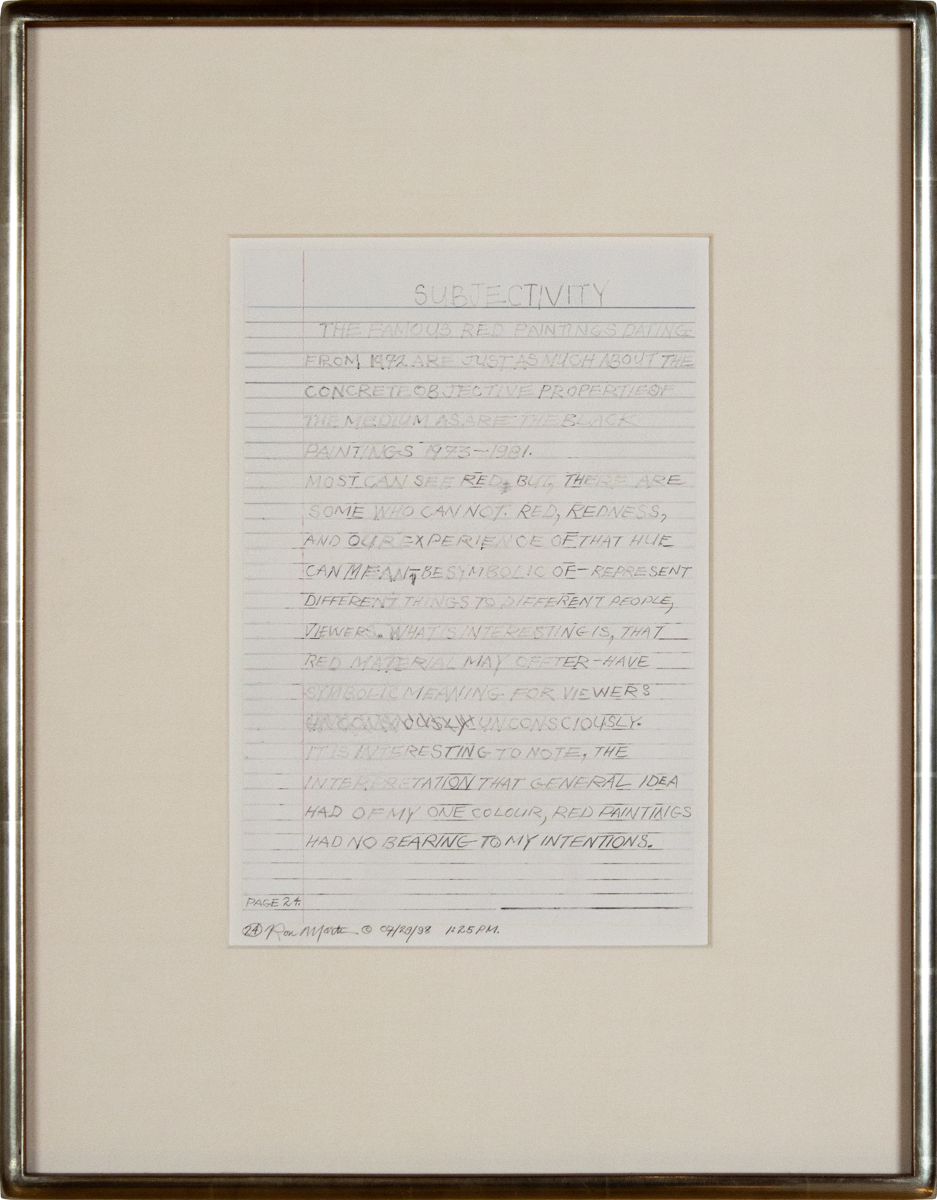 SUBJECTIVITY
THE FAMOUS RED PAINTINGS DATING
FROM 1972 ARE JUST AS MUCH ABOUT THE
CONCRETE OBJECTIVE PROPERTIE OF
THE MEDIUM AS ARE THE BLACK
PAINTINGS 1973-1981.
MOST CAN SEE RED, BUT, THERE ARE
SOME WHO CAN NOT. RED, REDNESS,
AND OUR EXPERIENCE OF THAT HUE
CAN MEAN, BE SYMBOLIC OF - REPRESENT
DIFFERENT THINGS TO DIFFERENT PEOPLE,
VIEWERS. WHAT IS INTERESTING IS, THAT
RED MATERIAL MAY OFTER - HAVE
SYMBOLIC MEANING FOR VIEWERS
UNCONSCIOUSLY.
IT IS INTERESTING TO NOTE, THE
INTERPRETATION THAT GENERAL IDEA
HAD OF MY ONE COLOUR, RED PAINTINGS
HAD NO BEARING TO MY INTENTIONS.
PAGE 24.
24 Ron Martin © 09/29/98 1:25 P.M.